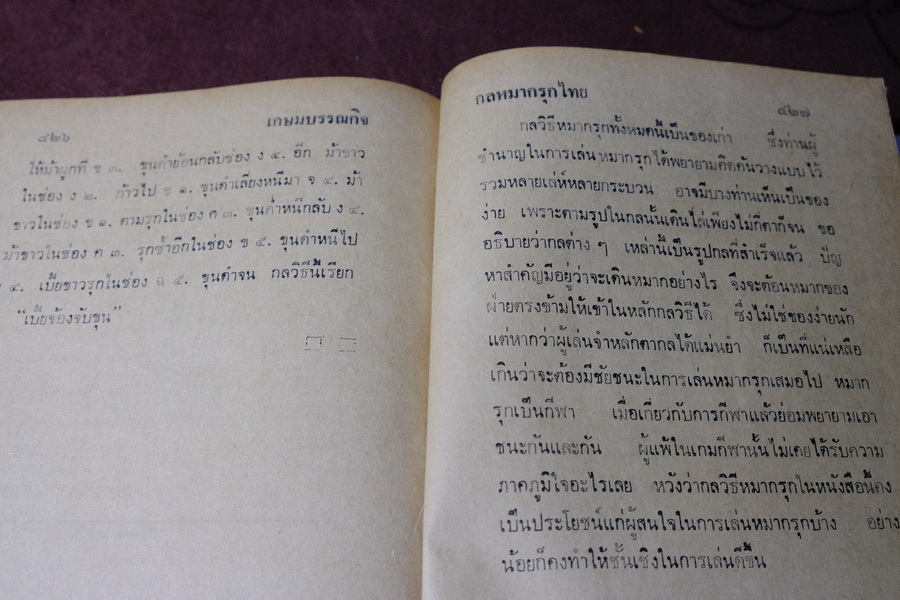 ๔๒๖
เกษมบรรณกิจ
ให้ม้าผูกที่ ช ๓. ขุนดำย้อนกลับช่อง ง ๔. อีก ม้าขาว
ในช่อง ง ๒. ก้าวไป ช ๑. ขุนดำเลี่ยงหนีมา จ ๔. ม้า
ขาวในช่อง ข ๑. ตามรุกในช่อง ค ๓. ขุนดำหนีกลับ ง ๔.
ม้าขาวในช่อง ค ๓. รุกซ้ำอีกในช่อง ข ๕. ขุนดำหนีไป
๔. เบี้ยขาวรุกในช่อง ฉ ๕. ขุนดำจน กลวิธีนี้เรียก
“เบี้ยจ้องจับขุน”
กลหมากรุกไทย
๔๒๗
กลวิธีหมากรุกทั้งหมดนี้เป็นของเก่า ซึ่งท่านผู้
ชำนาญในการเล่นหมากรุกได้พยายามคิดค้นวางแบบไว้
รวมหลายเล่ห์หลายกระบวน อาจมีบางท่านเห็นเป็นของ
ง่าย เพราะตามรูปในกลนั้นเดินไล่เพียงไม่กี่ตาก็จน ขอ
อธิบายว่ากลต่าง ๆ เหล่านี้เป็นรูปกลที่สำเร็จแล้ว ปัญ
หาสำคัญมีอยู่ว่าจะเดินหมากอย่างไร จึงจะต้อนหมากของ
ฝ่ายตรงข้ามให้เข้าในหลักกลวิธีได้ ซึ่งไม่ใช่ของง่ายนัก
แต่หากว่าผู้เล่นจำหลักตากลได้แม่นยำ ก็เป็นที่แน่เหลือ
เกินว่าจะต้องมีชัยชนะในการเล่นหมากรุกเสมอไป หมาก
รุกเป็นกีฬา เมื่อเกี่ยวกับการกีฬาแล้วย่อมพยายามเอา
ชนะกันและกัน ผู้แพ้ในเกมกีฬานั้นไม่เคยได้รับความ
ภาคภูมิใจอะไรเลย หวังว่ากลวิธีหมากรุกในหนังสือนี้คง
เป็นประโยชน์แก่ผู้สนใจในการเล่นหมากรุกบ้าง อย่าง
น้อยก็คงทำให้ชั้นเชิงในการเล่นดีขึ้น